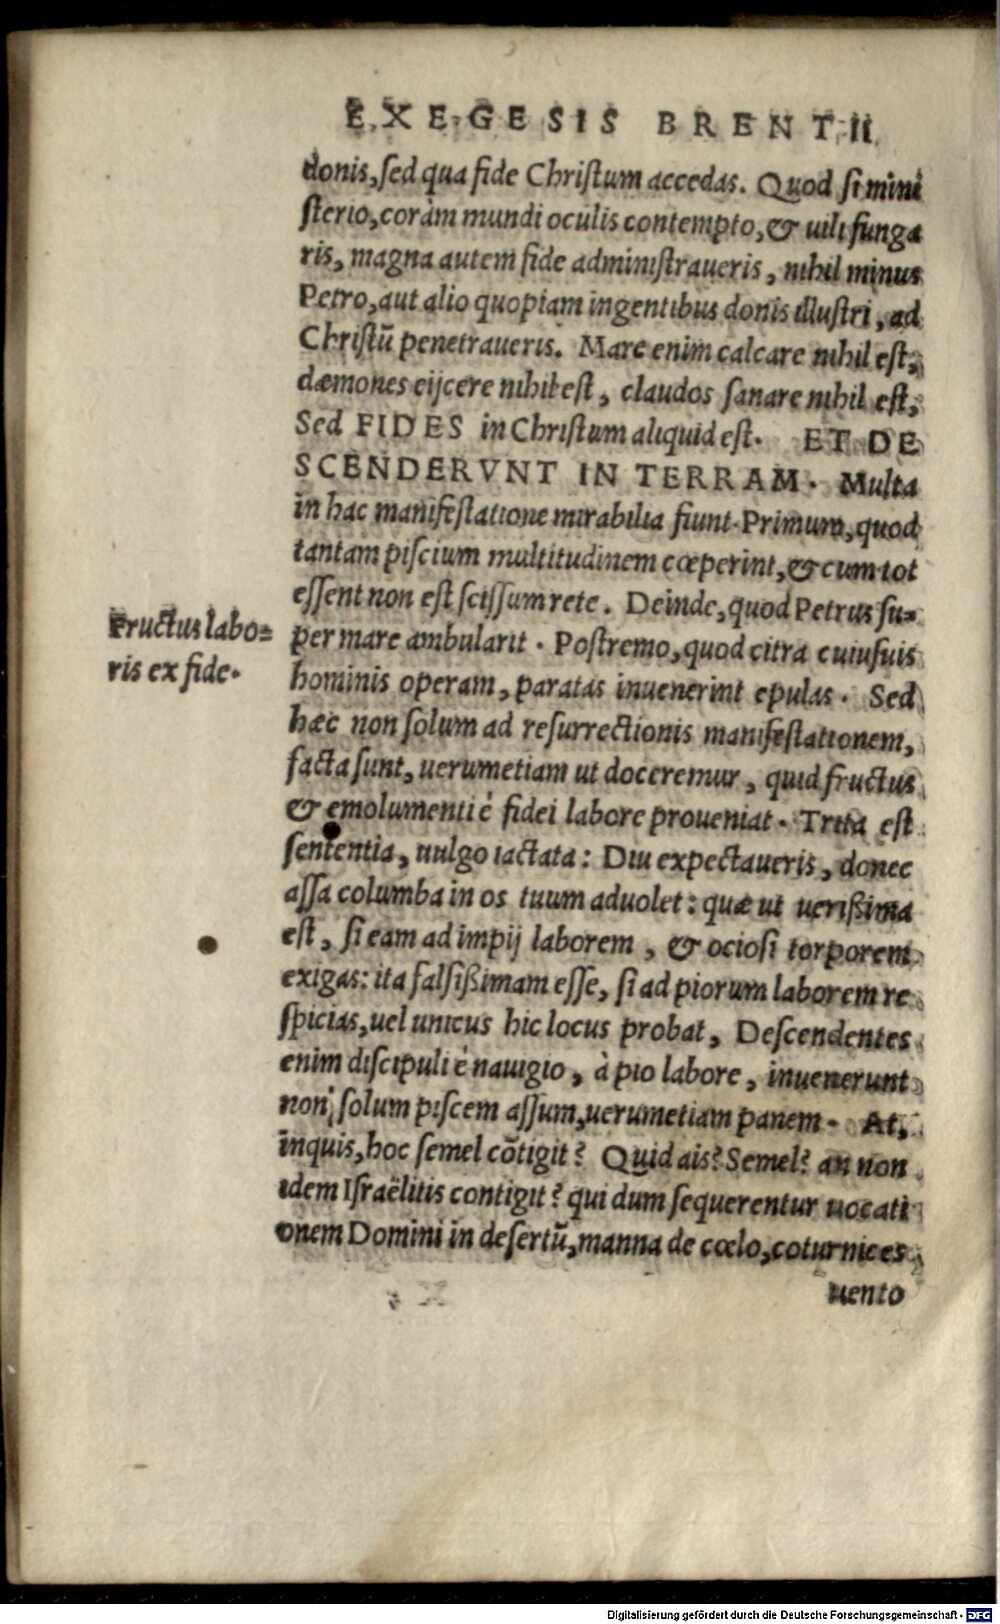 EXEGESIS BRENTII
donis, sed qua fide Christum accedas. Quod si mini
sterio, coràm mundi oculis contempto, & uili funga
ris, magna autem fide administraueris, nihil minus
Petro, aut alio quopiam ingentibus donis illustri, ad
Christū penetraueris. Mare enim calcare nihil est,
dæmones eijcere nihil est, claudos sanare nihil est,
Sed FIDES in Christum aliquid est. ET DE
SCENDERVNT IN TERRAM. Multa
in hac manifestatione mirabilia fiunt. Primum, quod
tantam piscium multitudinem cœperint, & cum tot
essent non est scissum rete. Deinde, quod Petrus su=
per mare ambularit. Postremo, quod citra cuiusuis
hominis operam, paratas inuenerint epulas. Sed
hæc non solum ad resurrectionis manifestationem,
facta sunt, uerumetiam ut doceremur, quid fructus
& emolumenti è fidei labore proueniat. Trita est
sententia, uulgo iactata: Diu expectaueris, donec
assa columba in os tuum aduolet: quæ ut uerißima
est, si eam ad impij laborem, & ociosi torporem
exigas: ita falsißimam esse, si ad piorum laborem re
spicias, uel unicus hic locus probat, Descendentes
enim discipuli è nauigio, à pio labore, inuenerunt
non solum piscem assum, uerumetiam panem. At,
inquis, hoc semel cōtigit? Quid ais? Semel? an non
idem Israëlitis contigit? qui dum sequerentur uocati
onem Domini in desertū, manna de cœlo, coturnices
uento
Fructus labo=
ris ex fide.
Digitalisierung gefördert durch die Deutsche Forschungsgemeinschaft - DFG